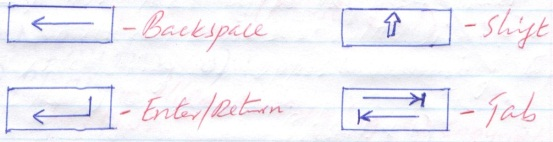 - Backspace - Shift
- Enter/Return - Tab